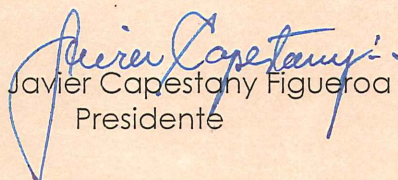 Javier Capestany
Javier Capestany Figueroa
Presidente